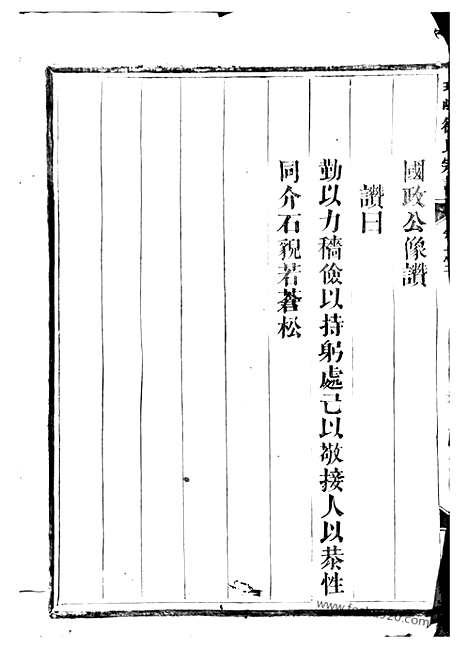 國政公像讚
讚曰
勤以力穡儉以持躬處己以敬接人以恭性
同介石貌若蒼松